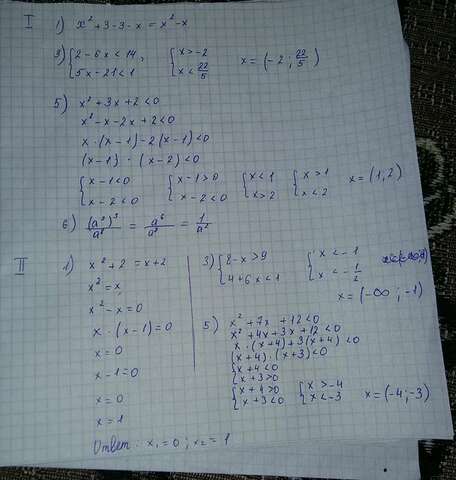 I
1) x² + 3 - 3 - x = x² - x
3) {2 - 6x < 14, {x > -2 x = (-2 ; 22/5)
{5x - 21 < 1 {x < 22/5
5) x² + 3x + 2 < 0
x² - x - 2x + 2 < 0
x · (x - 1) - 2(x - 1) < 0
(x - 1) · (x - 2) < 0
{x - 1 < 0 {x - 1 > 0 {x < 1 {x > 1 x = (1, 2)
{x - 2 < 0 {x - 2 < 0 {x > 2 {x < 2
6) (a²)³/a⁸ = a⁶/a⁸ = 1/a²
II
1) x² + 2 = x + 2
x² = x
x² - x = 0
x · (x - 1) = 0
x = 0
x - 1 = 0
x = 0
x = 1
Ответ. x₁ = 0 ; x₂ = 1
3) {8 - x > 9 {x < -1
{4 + 6x < 1 {x < -1/2
x = (-∞ ; -1)
5) x² + 7x + 12 < 0
x² + 4x + 3x + 12 < 0
x · (x + 4) + 3(x + 4) < 0
(x + 4) · (x + 3) < 0
{x + 4 < 0
{x + 3 > 0
{x + 4 > 0 {x > -4 x = (-4; -3)
{x + 3 < 0 {x < -3